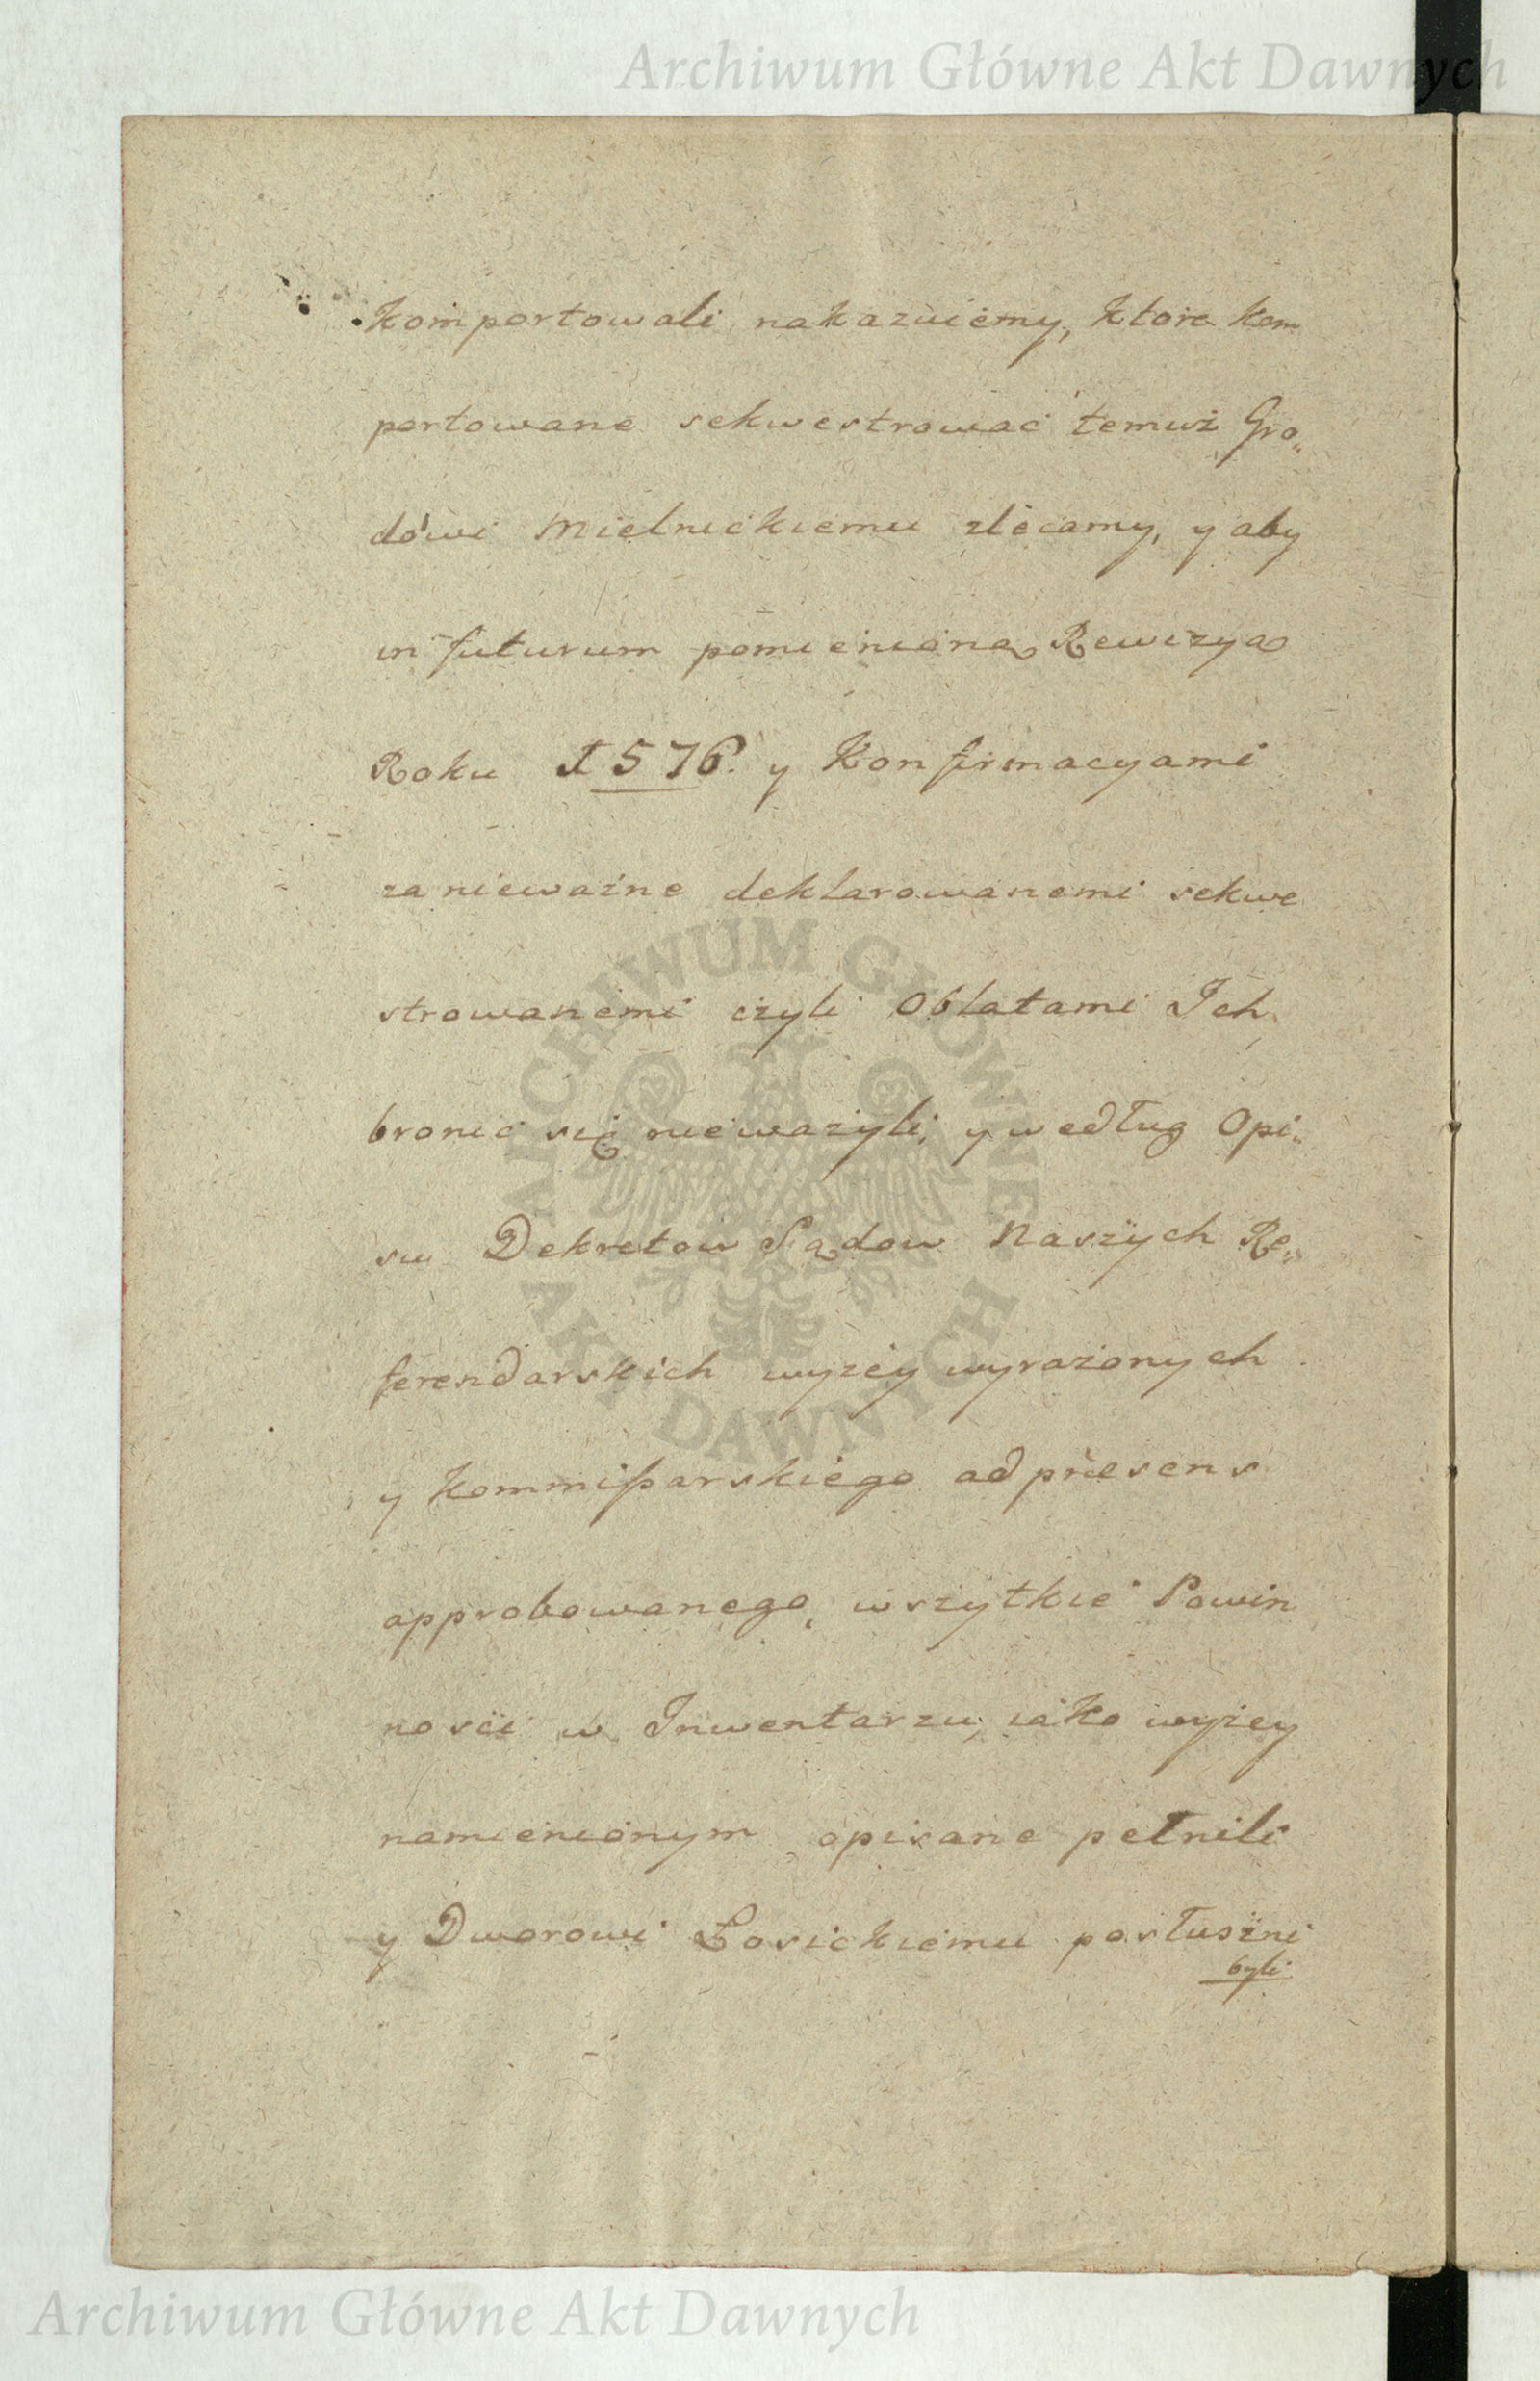 Archiwum Główne Akt Dawnych
Komportowali nakazuiemy, ktore kom
portowane sekwestrować temuż Gro„
dowi Mielnickiemu zlecamy, y aby
in futurum pomienioną Rewizyą
Roku 1576. y Konfirmacyami
za nieważne deklarowanemi sekwe
strowanemi czyli Oblatami Ich
bronić się nieważyli, y według Opi„
su Dekretow Sądow Naszych Re„
ferendarskich wyżey wyrażonych
y Kommißarskiego ad præsens
approbowanego, wszytkie Powin
ności w Inwentarzu, iako wyżey
namienionym opisane pełnili
y Dworowi Łosickiemu posłuszni
byli
ARCHIWUM GŁÓWNE AKT DAWNYCH
Archiwum Główne Akt Dawnych